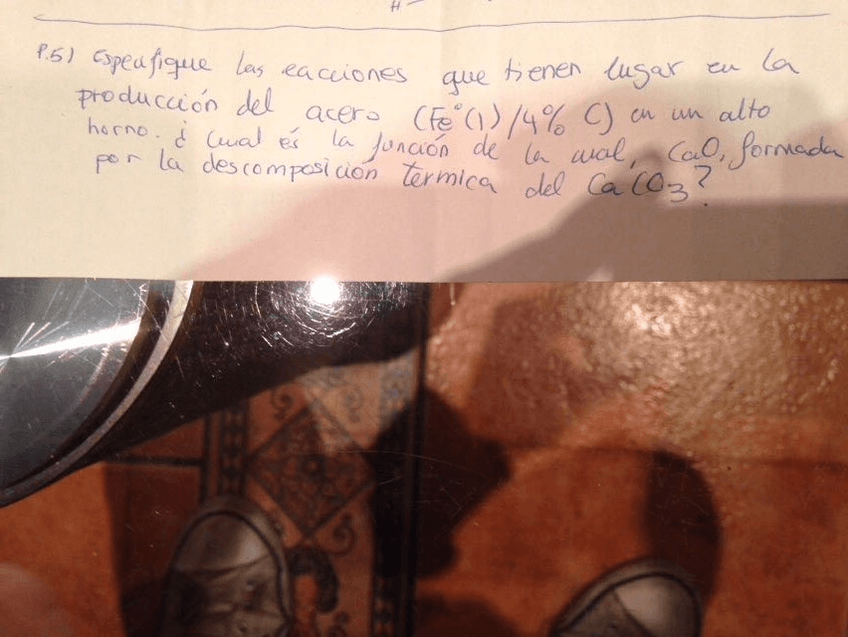 P.5) Especifique las eacciones que tienen lugar en la
producción del acero (Fe°(l)/4% C) en un alto
horno. ¿Cual és la función de la cual, CaO, formada
por la descomposición térmica del CaCO3?